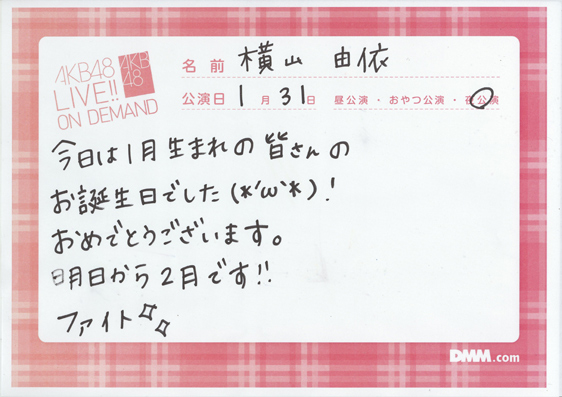 AKB48
LIVE!!
ON DEMAND
AKB
48
名前 横山 由依
公演日 1月31日 昼公演・おやつ公演・夜公演
今日は1月生まれの皆さんの
お誕生日でした(*'ω'*)!
おめでとうございます。
明日から2月です!!
ファイト
DMM.com